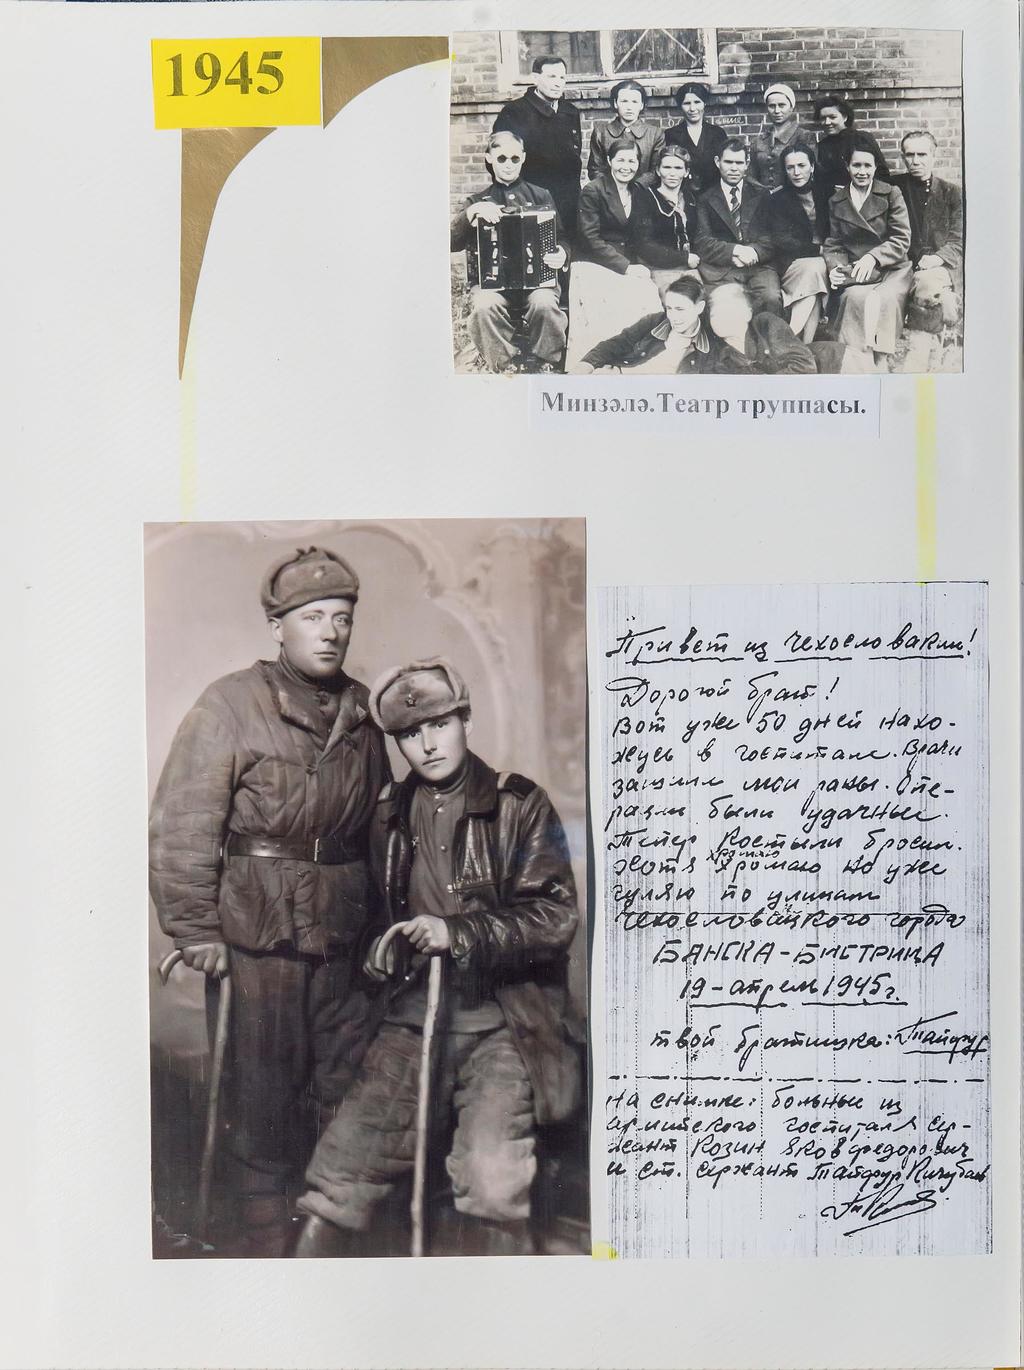 1945
Минзәлә.Театр труппасы.
Привет из Чехословакии!
Дорогой брат!
Вот уже 50 дней нахо-
жусь в госпитале. Врачи
зашили мои раны. Опе-
рации были удачные.
Теперь костыли бросил.
хотя хромаю но уже
гуляю по улицам
Чехословацкого города
БАНСКА-БИСТРИЦА
19-апрель 1945г.
твой братишка: Тайфур
На снимке: больные из
армейского госпиталя сер-
жант Козин Яков Федорович
и ст. сержант Тайфур